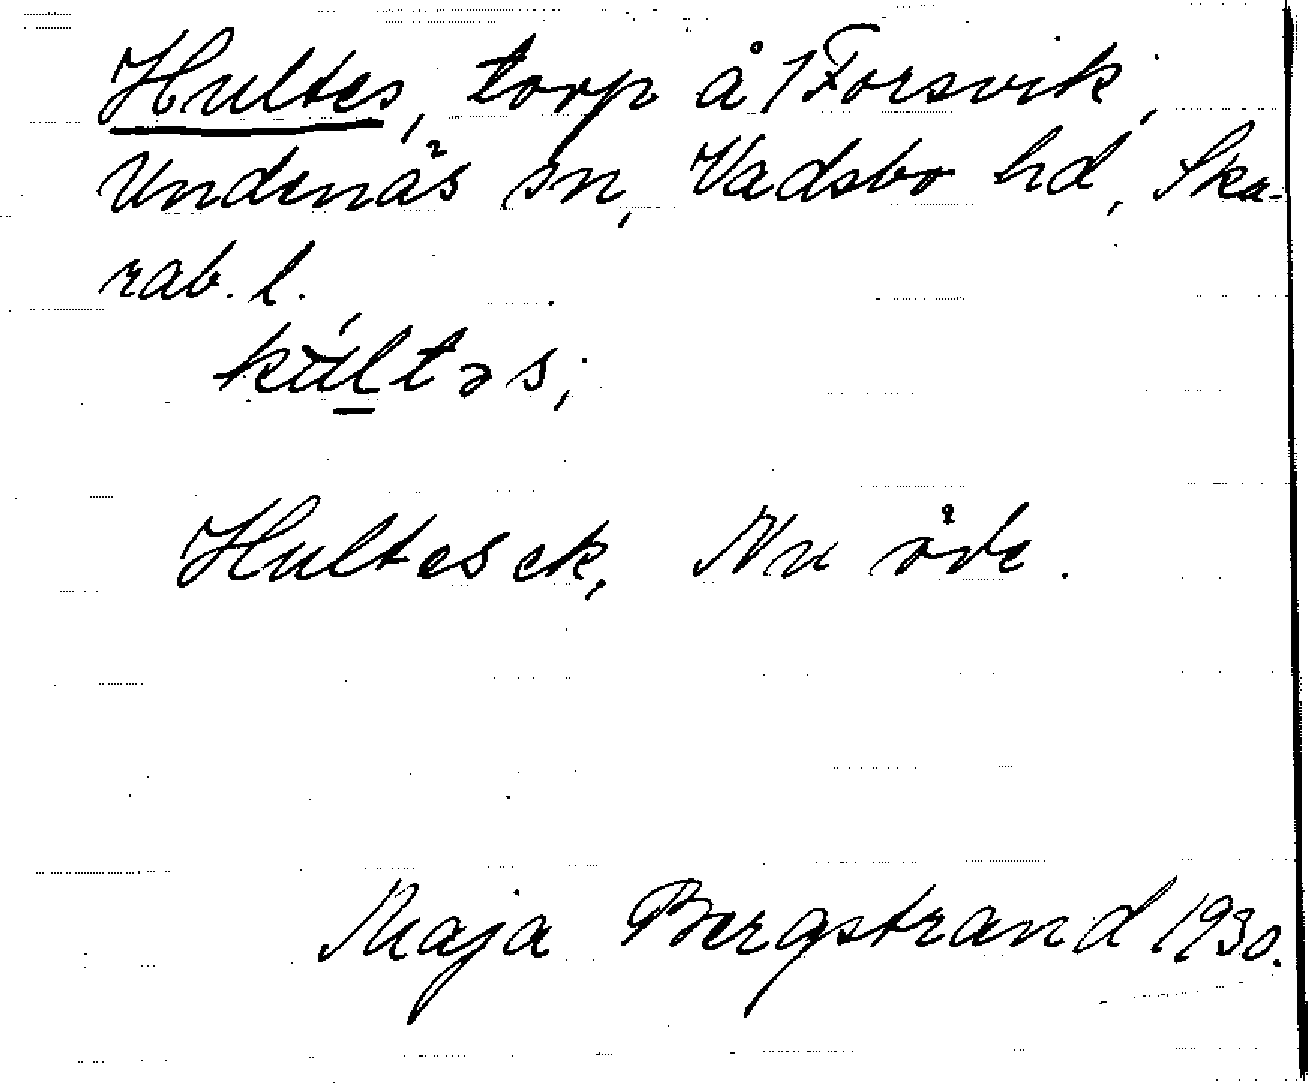 Hultes, torp å 1 Forsvik,
Undenäs sn, Vadsbo hd, Ska-
rab. l.
húltəs;
Hultes ek. Nu öde.
Maja Bergstrand 1930.